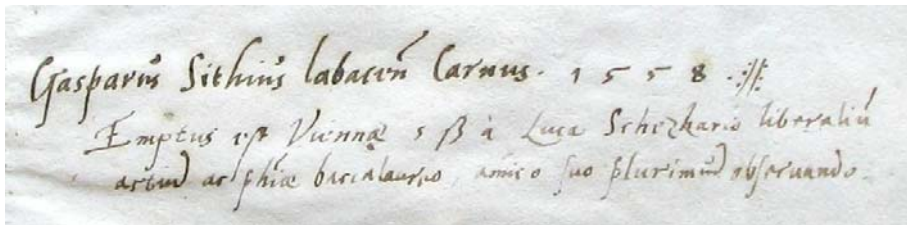 Gasparus Sithius labacen̄ Carnus. 1558 .//.
Emptus est Viennæ 5 ß à Luca Schezhario liberaliū
artiū ac ph̄iæ baccalaureo, amico suo plurimū observando.